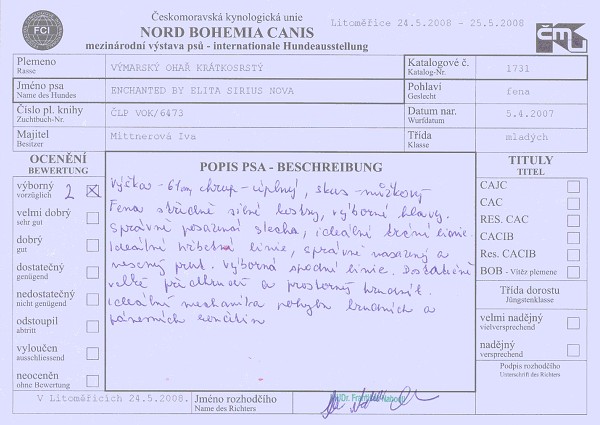 FCI
Českomoravská kynologická unie
NORD BOHEMIA CANIS
mezinárodní výstava psů - internationale Hundeausstellung
Litoměřice 24.5.2008 - 25.5.2008
ČMKU
Plemeno
Rasse
VÝMARSKÝ OHAŘ KRÁTKOSRSTÝ
Katalogové č.
Katalog-Nr.
1731
Jméno psa
Name des Hundes
ENCHANTED BY ELITA SIRIUS NOVA
Pohlaví
Geslecht
fena
Číslo pl. knihy
Zuchtbuch-Nr.
ČLP VOK/6473
Datum nar.
Wurfdatum
5.4.2007
Majitel
Besitzer
Mittnerová Iva
Třída
Klasse
mladých
OCENĚNÍ
BEWERTUNG
výborný 2
vorzüglich
velmi dobrý
sehr gut
dobrý
gut
dostatečný
genügend
nedostatečný
nicht genügend
odstoupil
abtritt
vyloučen
ausschliessend
neoceněn
ohne Bewertung
POPIS PSA - BESCHREIBUNG
Výška - 61cm, chrup - úplný, skus - nůžkový
Fena středně silné kostry, výborné hlavy.
Správně posazená slecha, ideální krční linie.
Ideální hřbetní linie, správně nasazený a
nesený prut. Výborná spodní linie. Dostatečně
velké předhrudí a prostorný hrudník.
ideální mechanika pohybu hrudních a
pánevních končetin
TITULY
TITEL
CAJC
CAC
RES. CAC
CACIB
Res. CACIB
BOB - Vítěz plemene
Třída dorostu
Jüngstenklasse
velmi nadějný
vielversprechend
nadějný
versprechend
Podpis rozhodčího
Unterschrift des Richters
V Litoměřicích 24.5.2008.
Jméno rozhodčího
Name des Richters